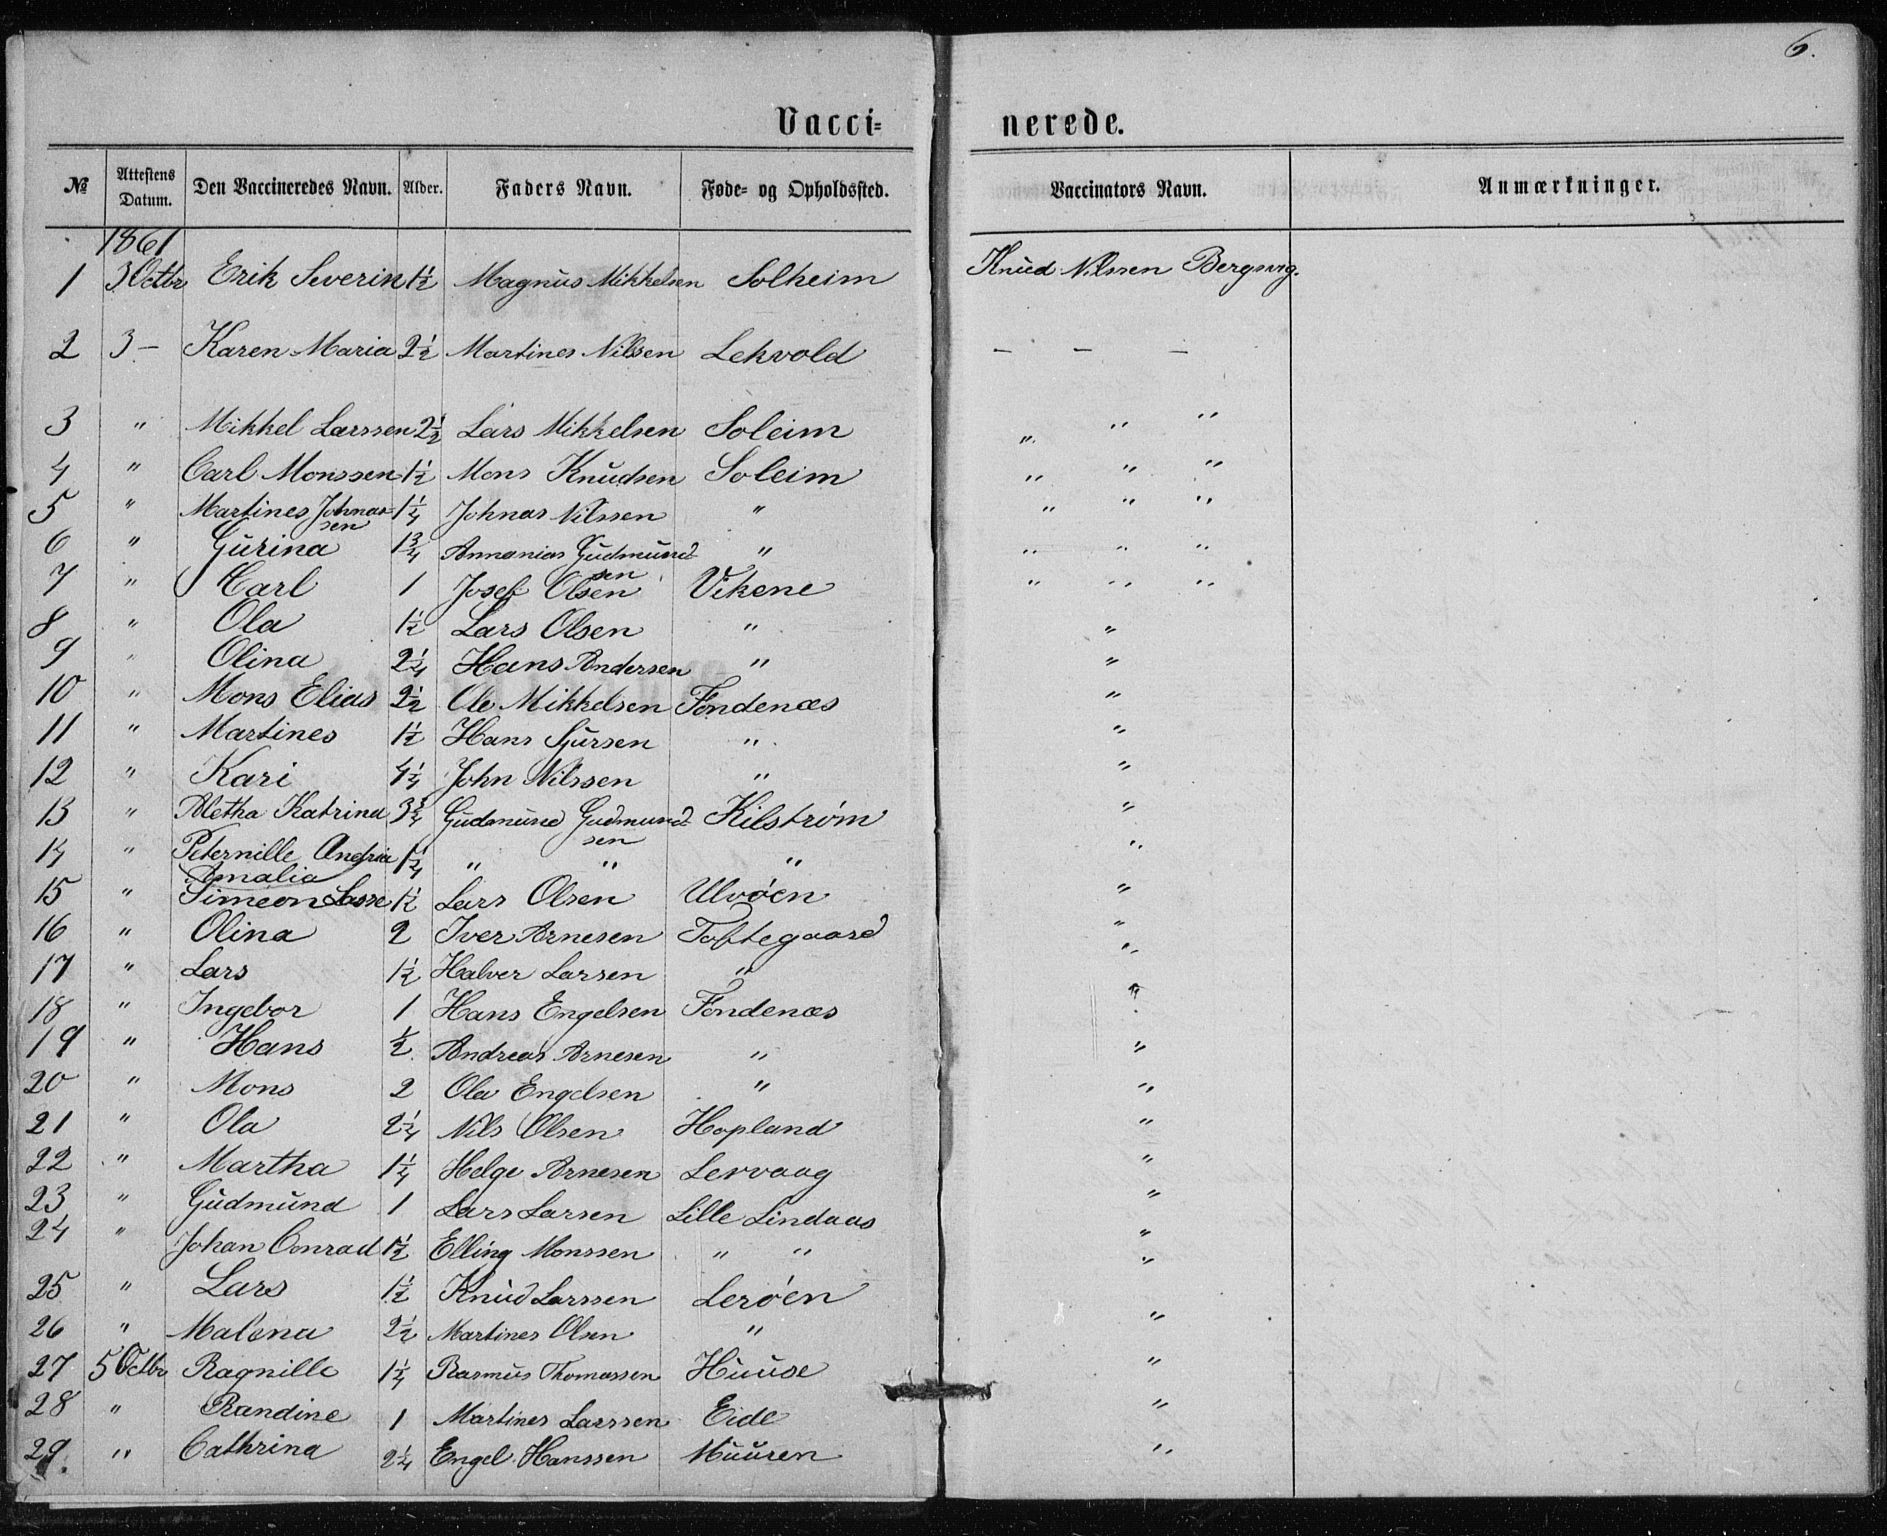 6.
Vacci= nerede.
№ Attestens Datum. Den Vaccineredes Navn. Alder. Faders Navn. Føde- og Opholdssted. Vaccinators Navn. Anmærkninger.
1861
1 3 Octbr Erik Severin 1½ Magnus Mikkelsen Solheim Knud Nilssen Bergsvig.
2 3 — Karen Maria 2½ Martines Nilssen Lekvold — — —
3 " Mikkel Larssen 2½ Lars Mikkelsen Soleim " " "
4 " Carl Monssen 1½ Mons Knudsen Soleim " " "
5 " Martines Johnas= 1¼ Johnas Nilssen " " " "
sen
6 " Gurina 1¾ Annanias Gudmund= " " " "
sen
7 " Carl 1 Josef Olsen Vikene " " "
8 " Ola 1½ Lars Olsen " "
9 " Olina 2¼ Hans Andersen " "
10 " Mons Elias 2½ Ole Mikkelsen Fondenæs "
11 " Martines 1½ Hans Sjursen " "
12 " Kari 4¼ John Nilssen " "
13 " Aletha Katrina 3¾ Gudmund Gudmund= Kilstrøm "
sen
14 " Peternille Andria 1¼ " " " "
Amalia
15 " Simeon Lasse 1½ Lars Olsen Ulvøen "
16 " Olina 2 Iver Arnesen Toftegaard "
17 " Lars 1½ Halver Larsen " "
18 " Ingebor 1 Hans Engelsen Fondenæs "
19 " Hans ½ Andreas Arnesen " "
20 " Mons 2 Ola Engelsen " "
21 " Ola 2¼ Nils Olsen Hopland "
22 " Martha 1¼ Helge Arnesen Lervaag "
23 " Gudmund 1 Lars Larsen Lille Lindaas "
24 " Johan Conrad 1½ Elling Monssen " " "
25 " Lars 1½ Knud Larssen Lerøen "
26 " Malena 2½ Martines Olsen " "
27 5 Octbr Ragnille 1¼ Rasmus Thomassen Huuse "
28 " Randine 1 Martines Larssen Eide "
29. " Cathrina 2¼ Engel Hanssen Muuren "